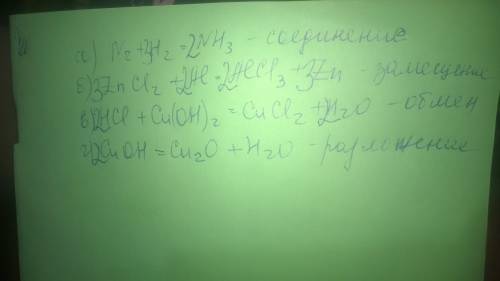 а) N₂ + 3H₂ = 2NH₃ - соединение
б) 3ZnCl₂ + 2Al = 2AlCl₃ + 3Zn - замещение
в) 2HCl + Cu(OH)₂ = CuCl₂ + 2H₂O - обмен
г) 2CuOH = Cu₂O + H₂O - разложение